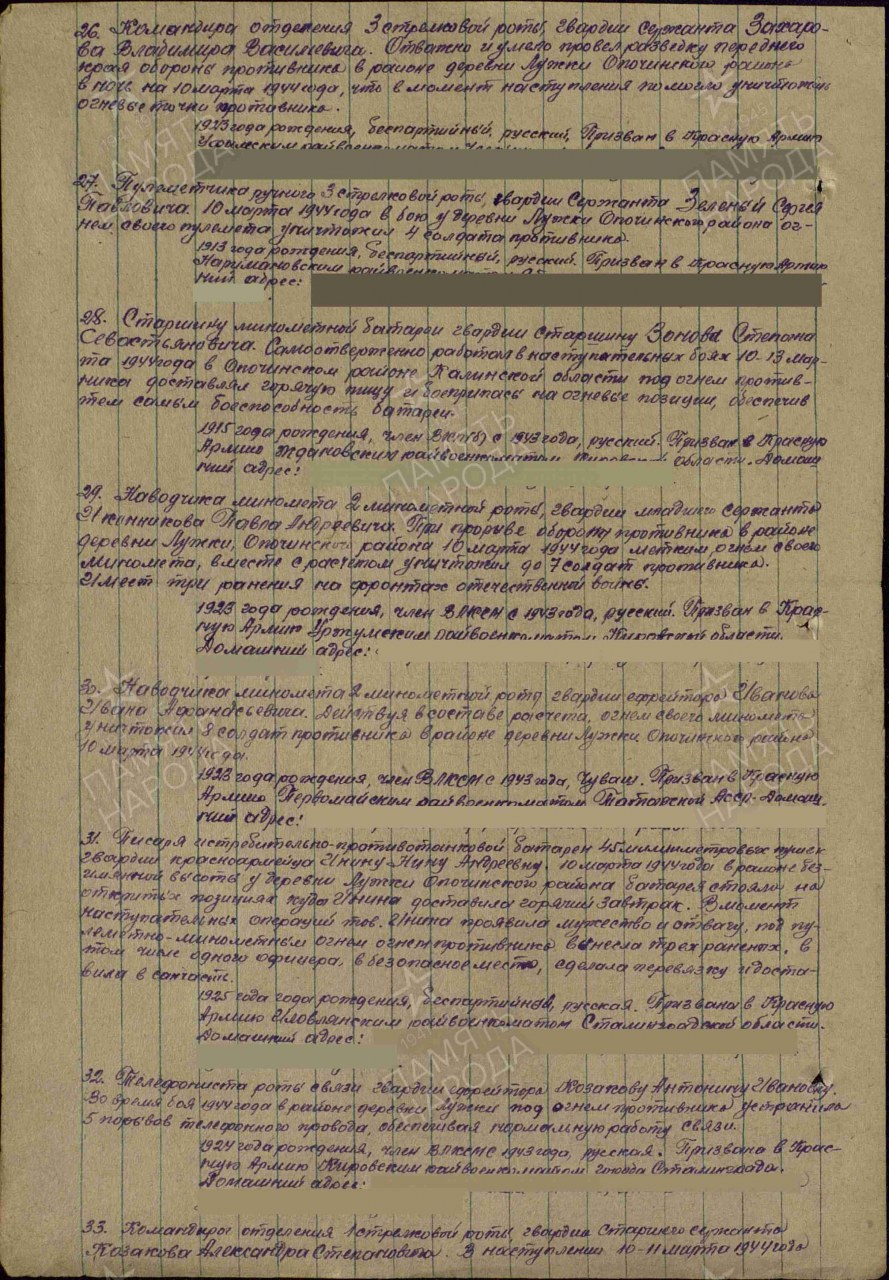 26. Командира отделения 3 стрелковой роты, гвардии сержанта Захаро-
ва Владимира Васильевича. Отважно и умело провел разведку переднего
края обороны противника в районе деревни Лужки Опочинского района
в ночь на 10 марта 1944 года, что в момент наступления помогло уничтожить
огневые точки противника.
1923 года рождения, беспартийный, русский. Призван в Красную Армию
райвоенкоматом
27. Пулеметчика ручного 3 стрелковой роты, гвардии Сержанта Зеленый Сергея
Павловича. 10 марта 1944 года в бою у деревни Лужки Опочинского района ог-
нем своего пулемета уничтожил 4 солдата противника.
1913 года рождения, беспартийный, русский. Призван в Красную Армию
Наримановским райвоенкоматом
ний адрес:
28. Старшину минометной батареи гвардии старшину Зонова Степана
Севастьяновича. Самоотверженно работал в наступательных боях 10-13 мар-
та 1944 года в Опочинском районе Калинской области под огнем против-
ника доставлял горячую пищу и боеприпасы на огневые позиции, обеспечив
тем самым боеспособность батареи.
1915 года рождения, член ВКП(б) с 1943 года, русский. Призван в Красную
Армию Ждановским райвоенкоматом Кировской области. Домаш
ний адрес:
29. Наводчика миномета 2 минометной роты, гвардии младшего сержанта
Иконникова Павла Андреевича. При прорыве обороны противника в районе
деревни Лужки, Опочинского района 10 марта 1944 года метким огнем своего
миномета, вместе с расчетом уничтожил до 7 солдат противника.
Имеет три ранения на фронтах отечественной войны.
1923 года рождения, член ВЛКСМ с 1943 года, русский. Призван в Крас-
ную Армию Уржумским райвоенкоматом Кировской области.
Домашний адрес:
30. Наводчика миномета 2 минометной роты гвардии ефрейтора Иванова
Ивана Афанасьевича. Действуя в составе расчета, огнем своего миномета
уничтожил 8 солдат противника в районе деревни Лужки Опочинского района
10 марта 1944 года.
1923 года рождения, член ВЛКСМ с 1943 года, Чуваш. Призван в Красную
Армию Первомайским райвоенкоматом Татарской Асср. Домаш-
ний адрес:
31. Писаря истребительно-противотанковой батареи 45 миллиметровых пушек
гвардии красноармейца Инину Нину Андреевну. 10 марта 1944 года в районе без-
имянной высоты у деревни Лужки Опочинского района батарея стояла на
открытых позициях куда Инина доставила горячий завтрак. В момент
наступательных операций тов. Инина проявила мужество и отвагу, под пу-
леметно-минометным огнем огнем противника вынесла трех раненых, в
том числе одного офицера, в безопасное место, сделала перевязку и доста-
вила в санчасть.
1925 года года рождения, беспартийная, русская. Призвана в Красную
Армию Иловлянским райвоенкоматом Сталинградской области.
Домашний адрес:
32. Телефониста роты связи гвардии ефрейтора Козакову Антонину Ивановну.
Во время боя 1944 года в районе деревни Лужки под огнем противника устранила
5 порывов телефонного провода, обеспечивая нормальную работу связи.
1924 года рождения, член ВЛКСМ с 1943 года, русская. Призвана в Крас-
ную Армию Кировским райвоенкоматом города Сталинграда.
Домашний адрес:
33. Командира отделения 1 стрелковой роты, гвардии старшего сержанта
Козакова Александра Степановича. В наступлении 10-11 марта 1944 года
ПАМЯТЬ
НАРОДА